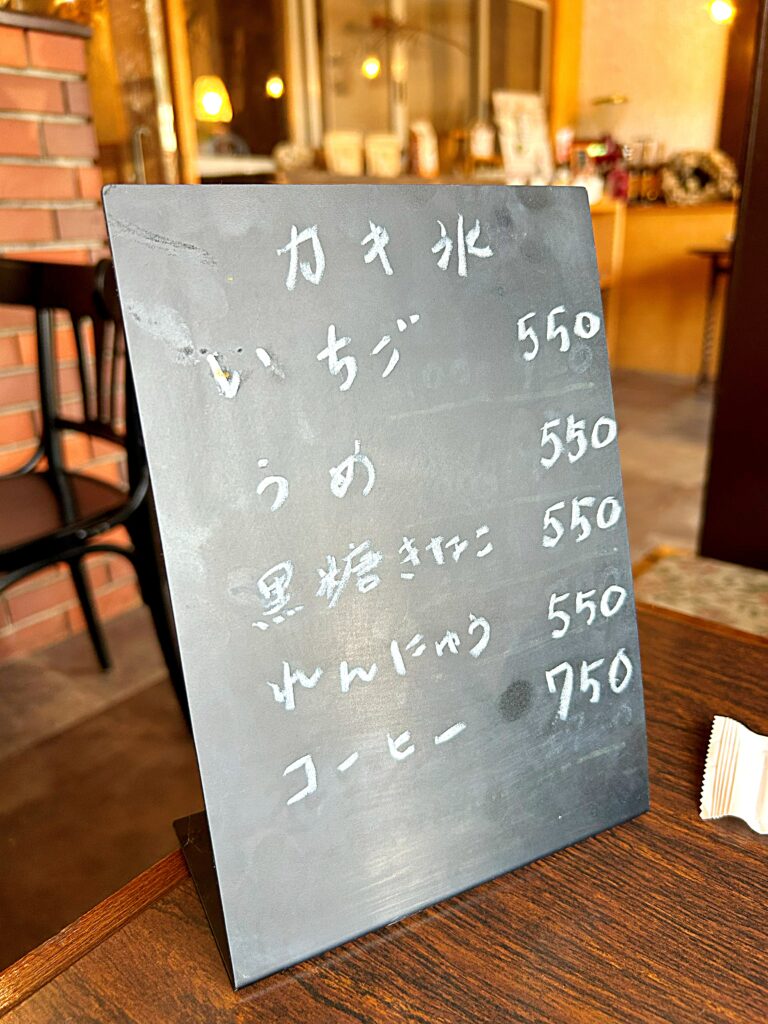 カキ氷
いちご 550
うめ 550
黒糖きなこ 550
れんにゅう 550
コーヒー 750